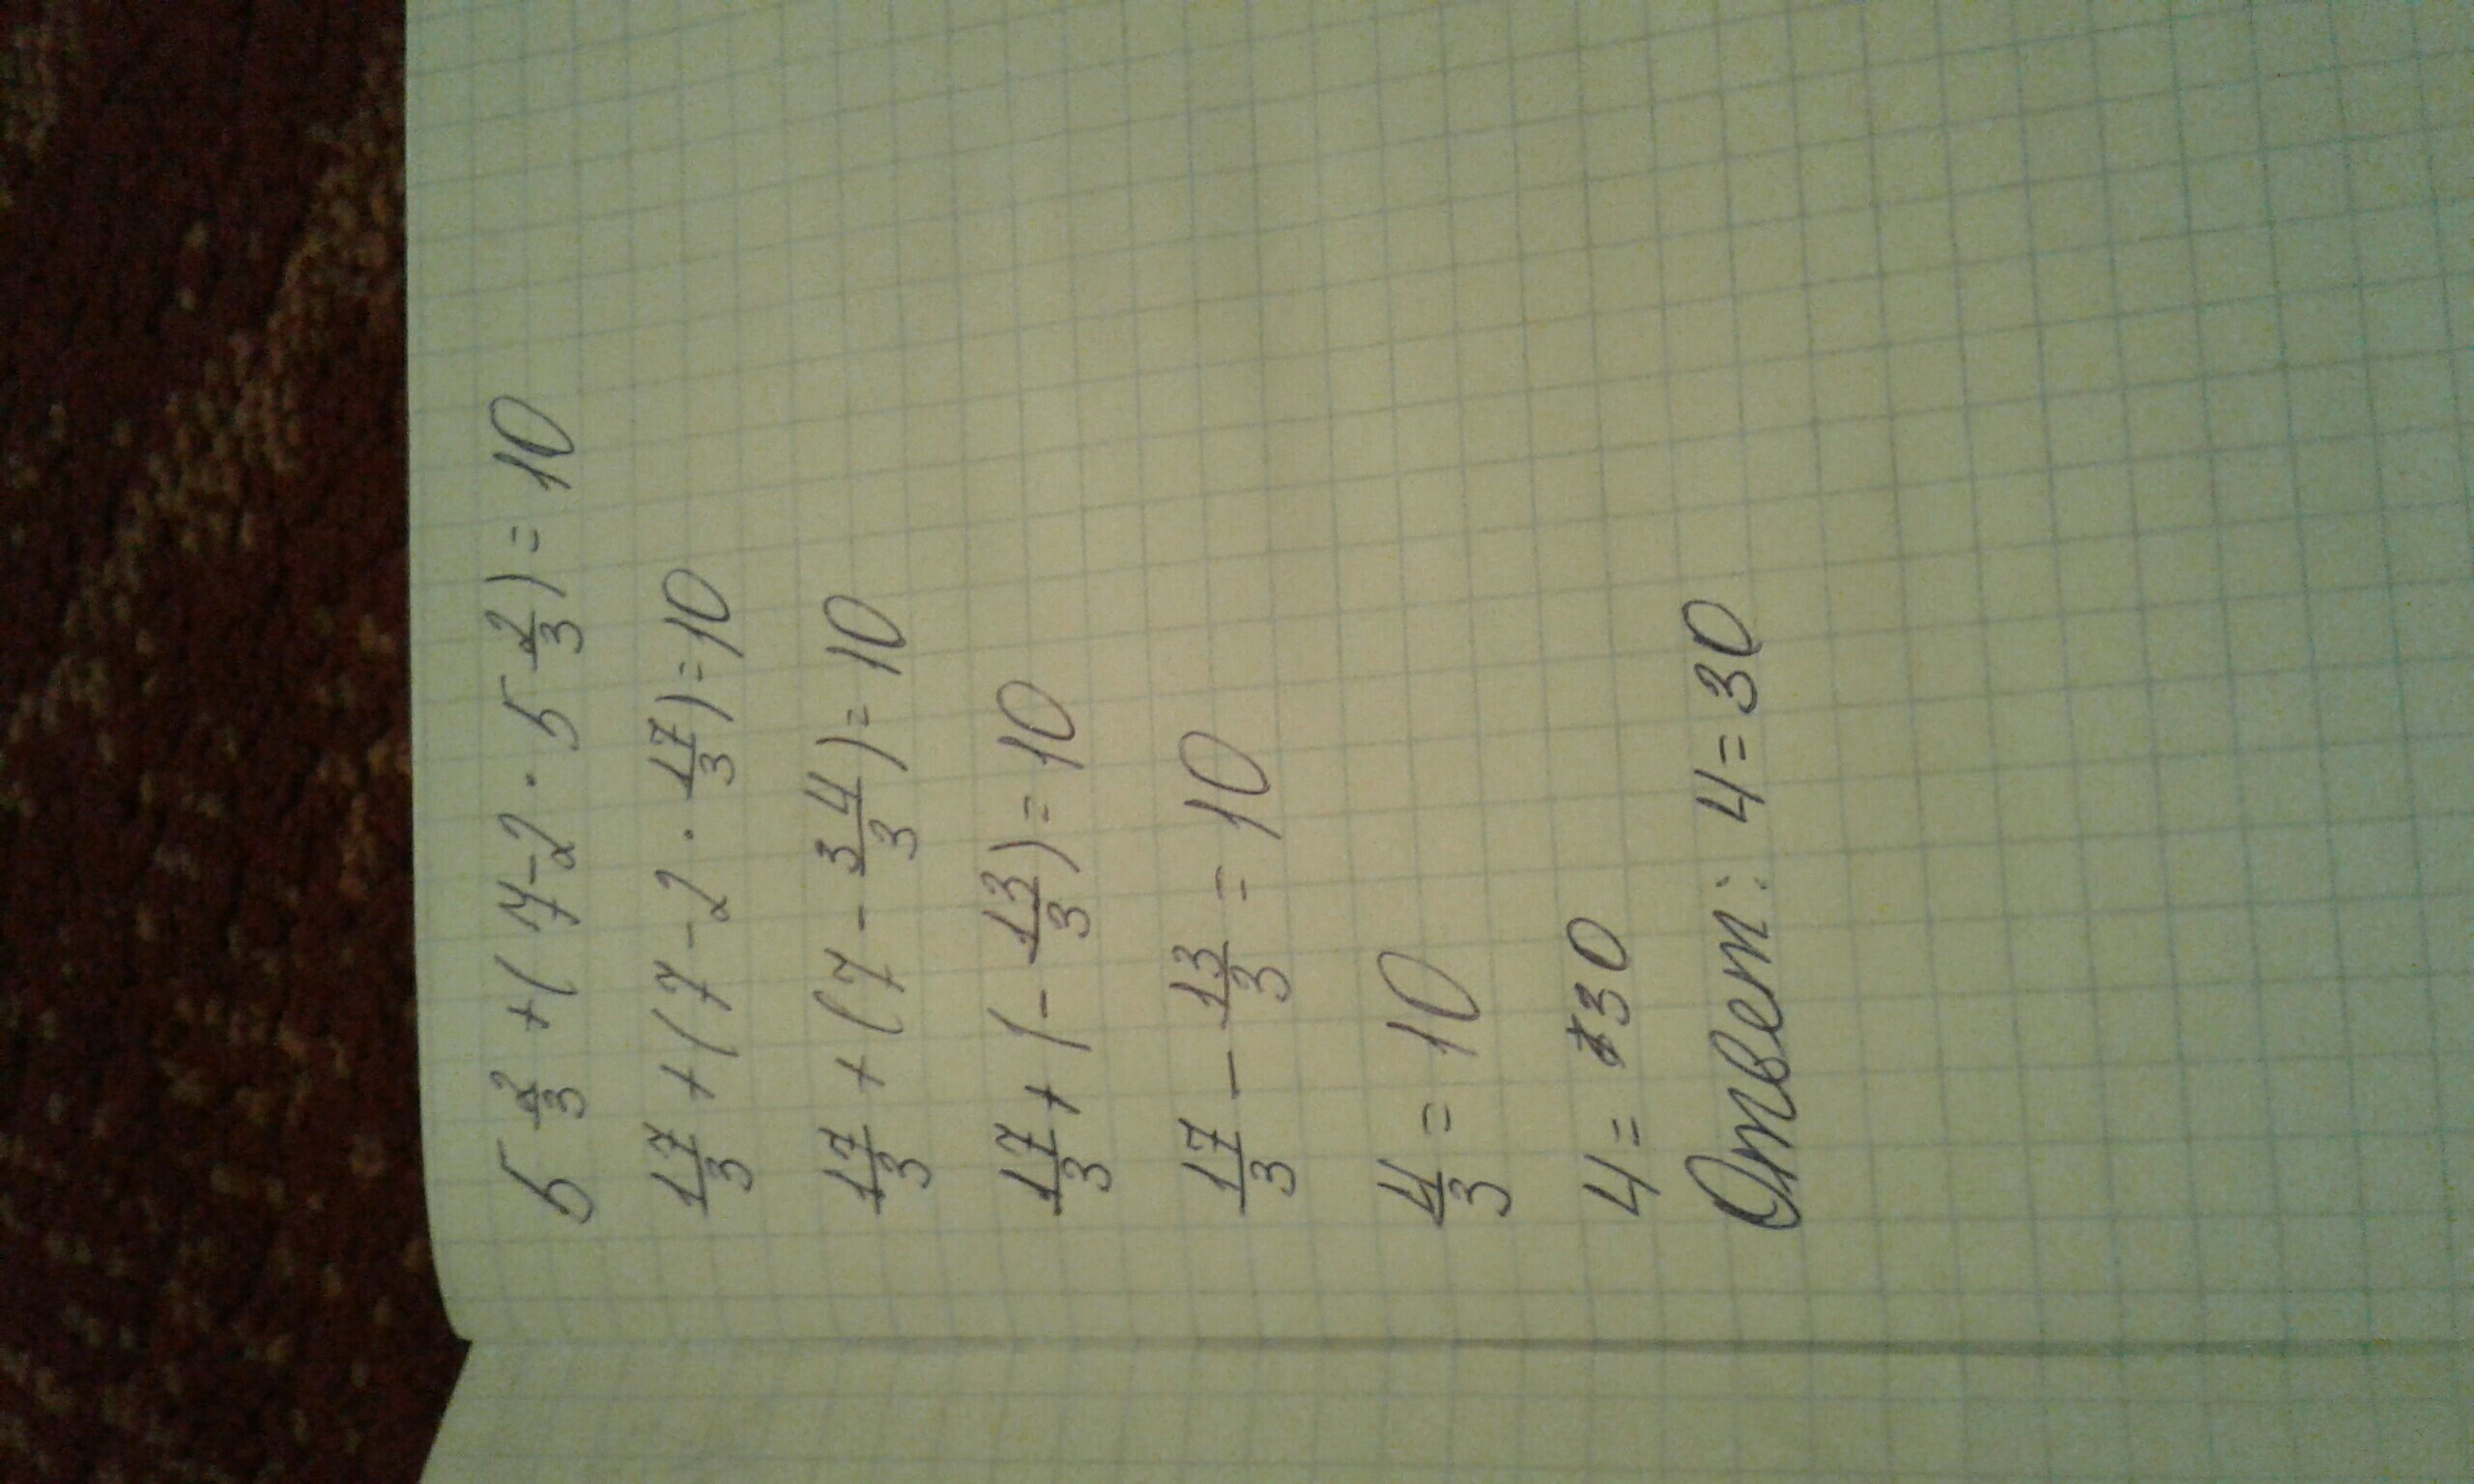 5 2/3 + (7 - 2 · 5 2/3) = 10
17/3 + (7 - 2 · 17/3) = 10
17/3 + (7 - 34/3) = 10
17/3 + (- 13/3) = 10
17/3 - 13/3 = 10
4/3 = 10
4 = 30
Ответ: 4 = 30